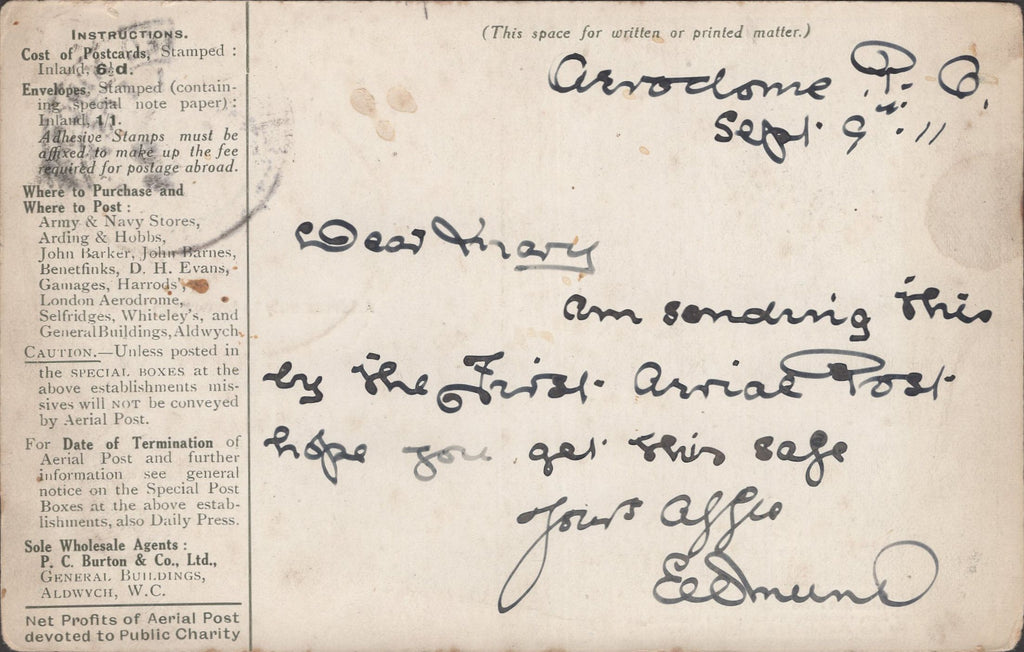 INSTRUCTIONS.
Cost of Postcards, Stamped :
Inland, 6½d.
Envelopes, Stamped (contain-
ing special note paper) :
Inland, 1/1.
Adhesive Stamps must be
affixed to make up the fee
required for postage abroad.
Where to Purchase and
Where to Post :
Army & Navy Stores,
Arding & Hobbs,
John Barker, John Barnes,
Benetfinks, D. H. Evans,
Gamages, Harrods',
London Aerodrome,
Selfridges, Whiteley's, and
General Buildings, Aldwych.
CAUTION.—Unless posted in
the SPECIAL BOXES at the
above establishments mis-
sives will NOT be conveyed
by Aerial Post.
For Date of Termination of
Aerial Post and further
information see general
notice on the Special Post
Boxes at the above estab-
lishments, also Daily Press.
Sole Wholesale Agents :
P. C. Burton & Co., Ltd.,
GENERAL BUILDINGS,
ALDWYCH, W.C.
Net Profits of Aerial Post
devoted to Public Charity
(This space for written or printed matter.)
Aerodome P. O.
Sept. 9th. 11
Dear Mary
am sending this
by the First Aerial Post
hope you get this safe
Yours Affec
Edmund